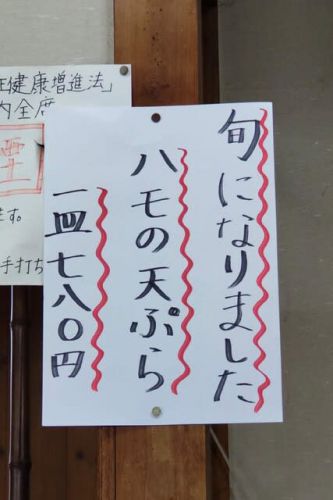 旬になりました
ハモの天ぷら
一皿七八〇円
王健康増進法」
内全席
煙
ます。
手打ち